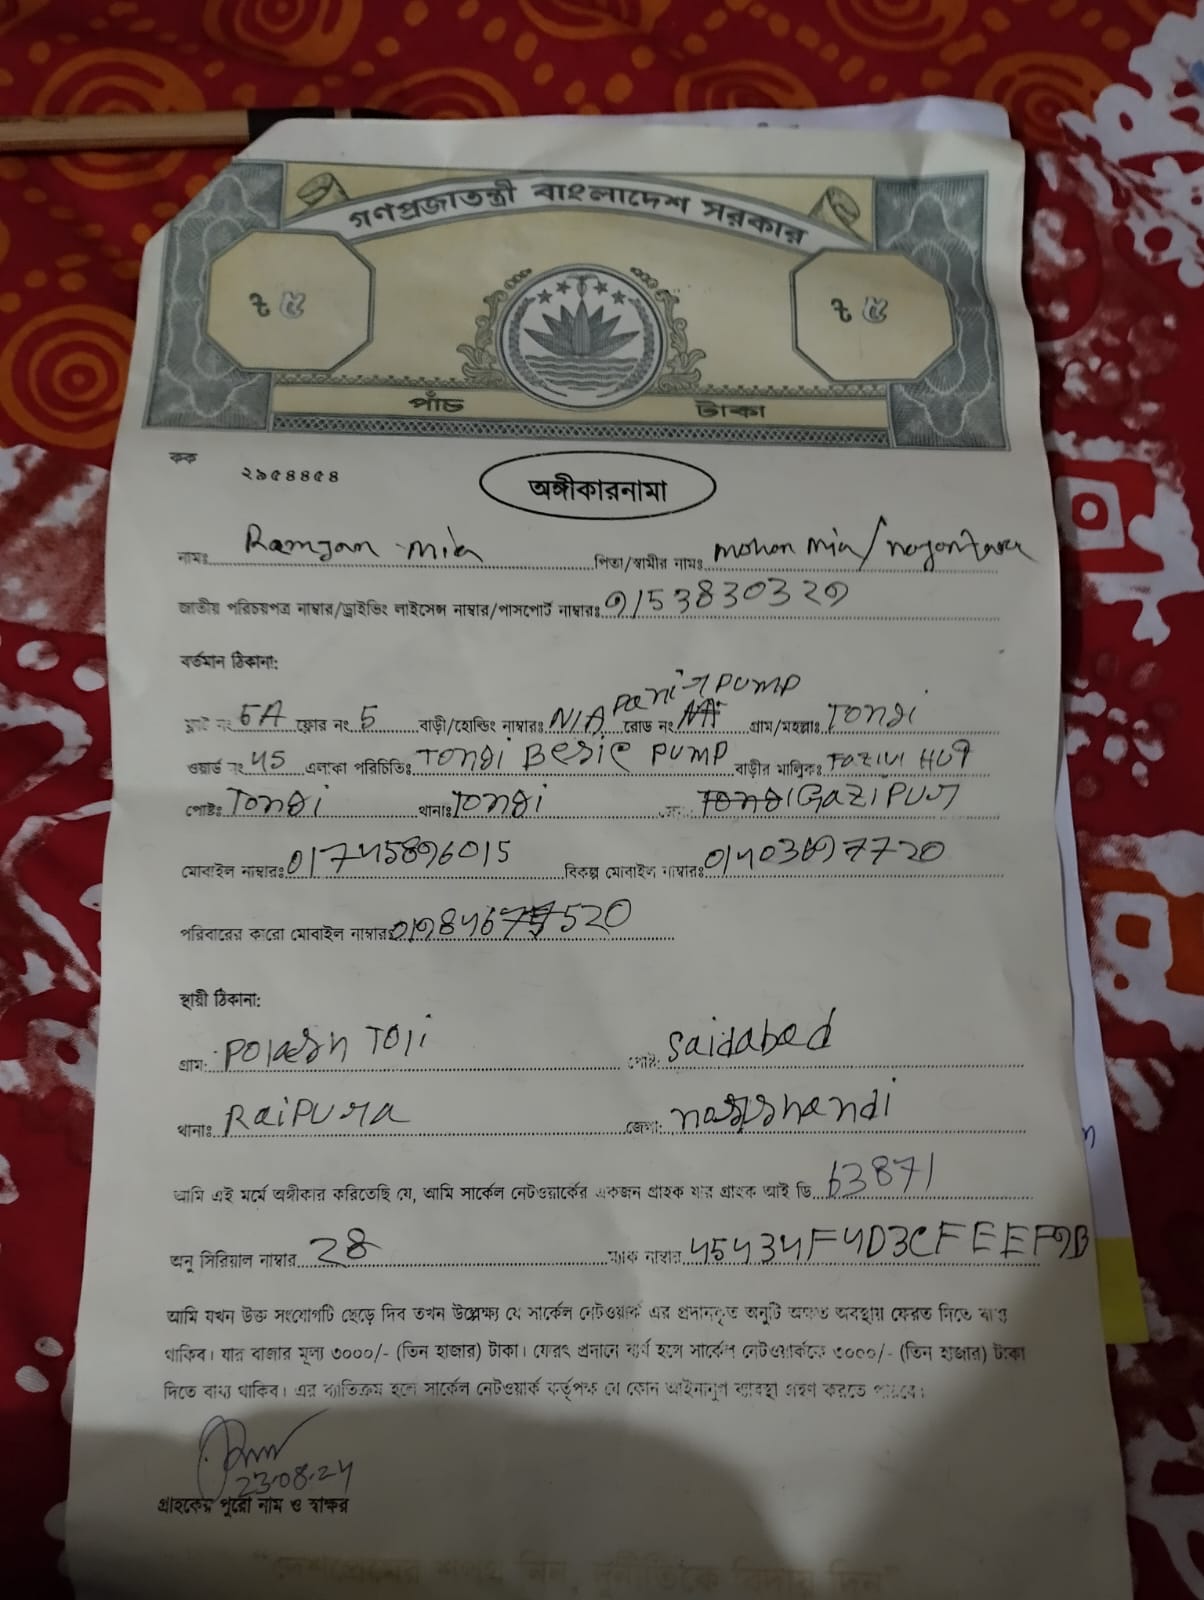 গণপ্রজাতন্ত্রী বাংলাদেশ সরকার
৳ ৫ ৳ ৫
পাঁচ টাকা
কক ২৯৫৪৪৫৪
অঙ্গীকারনামা
নামঃ Ramjan mia পিতা/স্বামীর নামঃ mohon mia/
জাতীয় পরিচয়পত্র নাম্বার/ড্রাইভিং লাইসেন্স নাম্বার/পাসপোর্ট নাম্বারঃ
বর্তমান ঠিকানা:
Pani-r PUMP
ফ্লাট নং 5A ফ্লোর নং 5 বাড়ী/হোল্ডিং নাম্বারঃ N/A রোড নং গ্রাম/মহল্লাঃ Tongi
ওয়ার্ড নং 45 এলাকা পরিচিতিঃ Tongi Besic PUMP বাড়ীর মালিকঃ Fazlul HUq
পোষ্টঃ Tongi থানাঃ Tongi GAZIPUr
মোবাইল নাম্বারঃ 01745896015 বিকল্প মোবাইল নাম্বারঃ
পরিবারের কারো মোবাইল নাম্বারঃ
স্থায়ী ঠিকানা:
গ্রাম: Polash Toli পোষ্ট: Saidabad
থানাঃ RaiPura জেলা: narshandi
আমি এই মর্মে অঙ্গীকার করিতেছি যে, আমি সার্কেল নেটওয়ার্কের একজন গ্রাহক যার গ্রাহক আই ডি 63871
অনু সিরিয়াল নাম্বার 28 ম্যাক নাম্বার 45434F4D3CFEEF9B
আমি যখন উক্ত সংযোগটি ছেড়ে দিব তখন উল্লেক্ষ্য যে সার্কেল নেটওয়ার্ক এর প্রদানকৃত অনুটি অক্ষত অবস্থায় ফেরত দিতে বাধ্য
থাকিব। যার বাজার মূল্য ৩০০০/- (তিন হাজার) টাকা। ফেরৎ প্রদানে ব্যর্থ হলে সার্কেল নেটওয়ার্ককে ৩০০০/- (তিন হাজার) টাকা
দিতে বাধ্য থাকিব। এর ব্যতিক্রম হলে সার্কেল নেটওয়ার্ক কর্তৃপক্ষ যে কোন আইনানুগ ব্যাবস্থা গ্রহণ করতে পারবে।
23-08-24
গ্রাহকের পুরো নাম ও স্বাক্ষর
"দেশপ্রেমের শপথ নিন, দুর্নীতিকে বিদায় দিন"